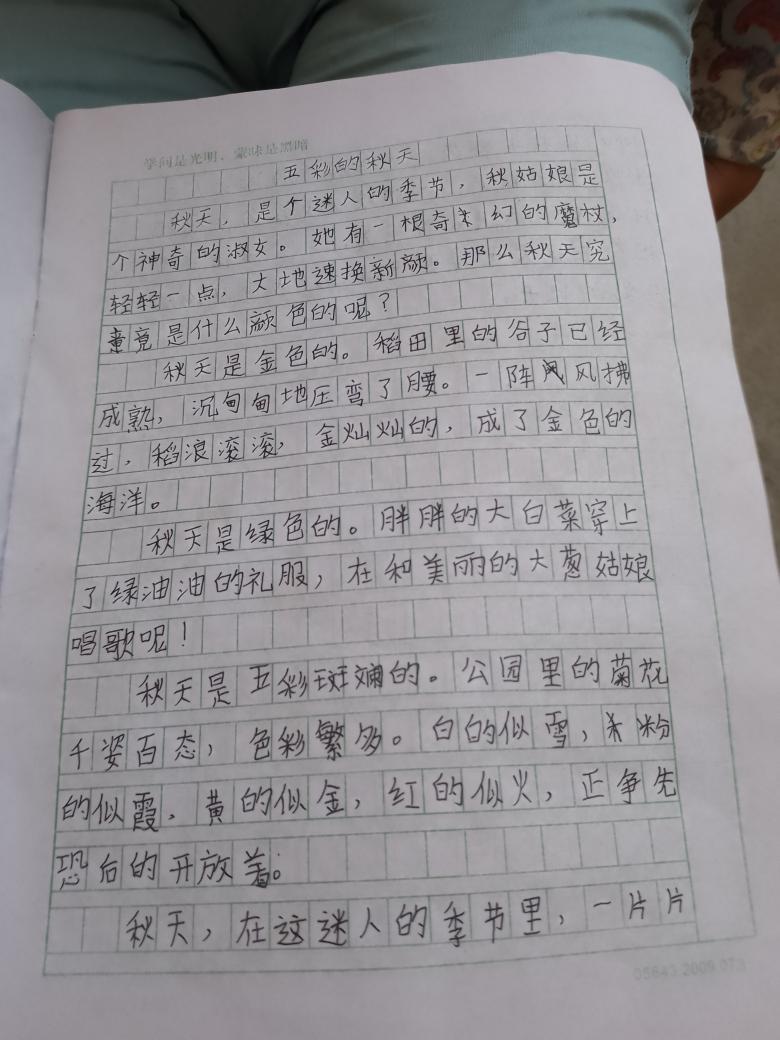 学问是光明，蒙昧是黑暗
五彩的秋天
秋天，是个迷人的季节，秋姑娘是
个神奇的淑女。她有一根奇幻的魔杖，
轻轻一点，大地速换新颜。那么秋天究
竟是什么颜色的呢？
秋天是金色的。稻田里的谷子已经
成熟，沉甸甸地压弯了腰。一阵风拂
过，稻浪滚滚，金灿灿的，成了金色的
海洋。
秋天是绿色的。胖胖的大白菜穿上
了绿油油的礼服，在和美丽的大葱姑娘
唱歌呢！
秋天是五彩斑斓的。公园里的菊花
千姿百态，色彩繁多。白的似雪，粉
的似霞，黄的似金，红的似火，正争先
恐后的开放着。
秋天，在这迷人的季节里，一片片
05643 2009.07.3